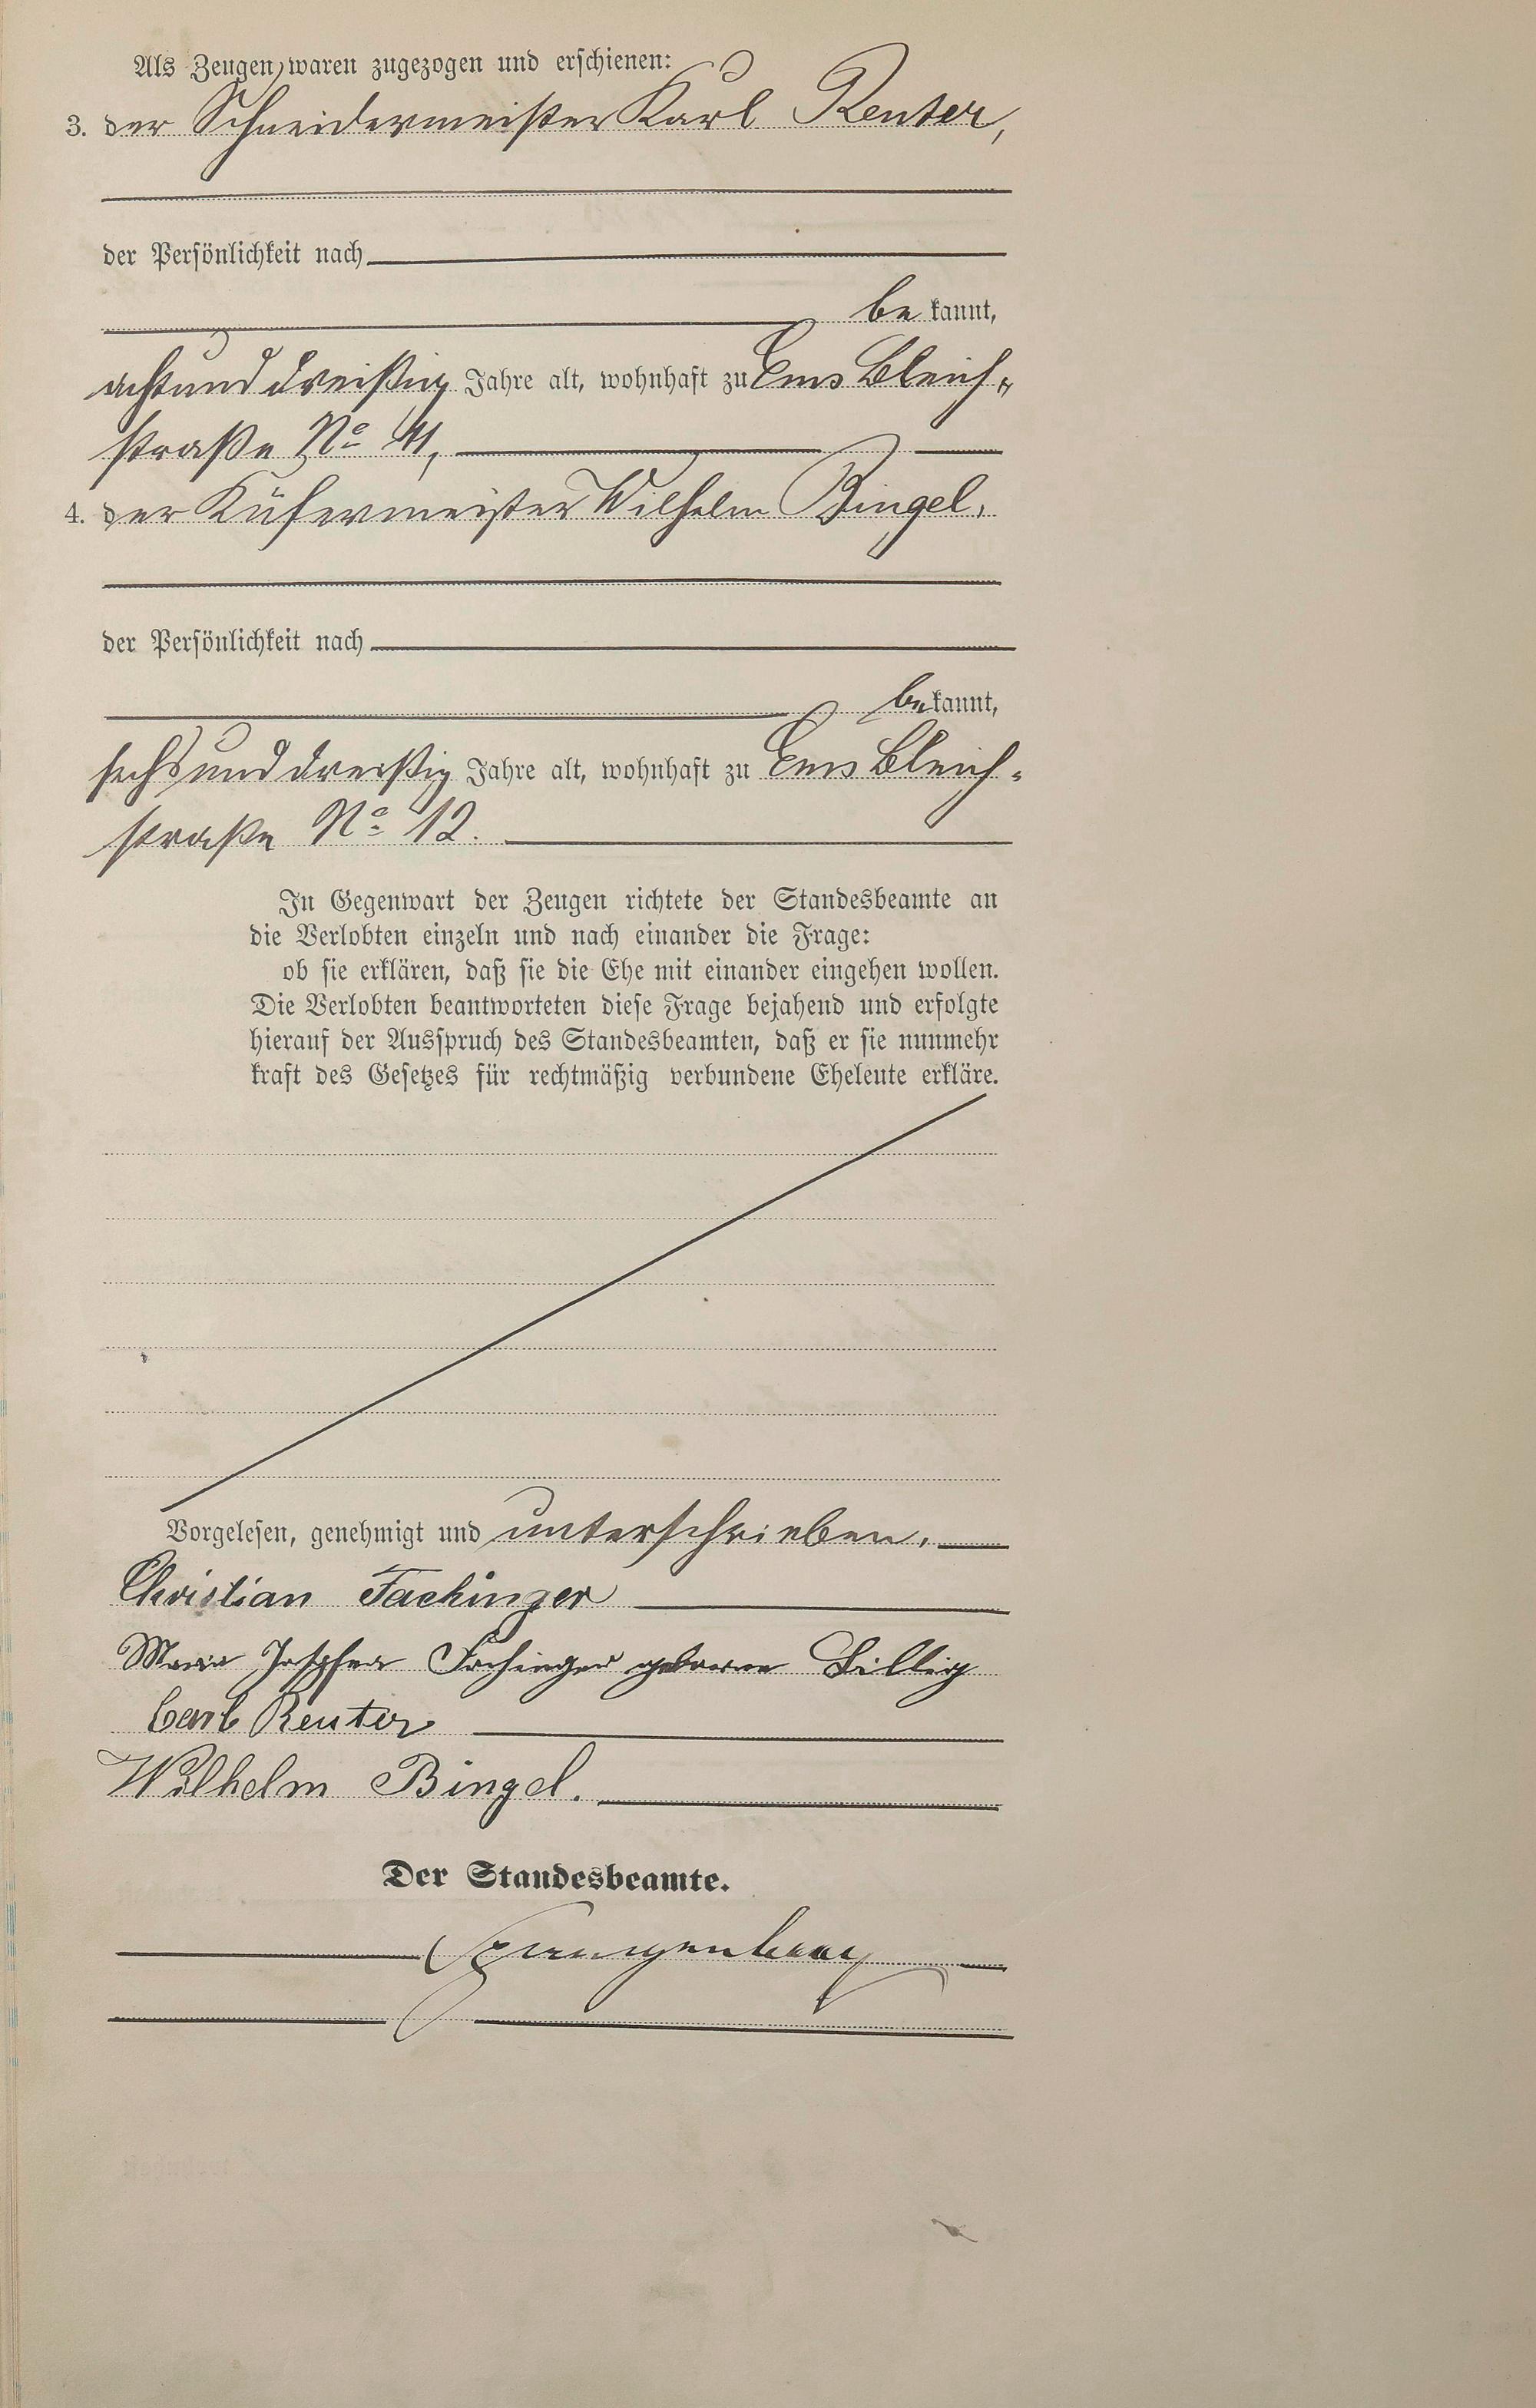 Als Zeugen waren zugezogen und erschienen:
3. der Schneidermeister Karl Reuter,
der Persönlichkeit nach
be kannt,
achtunddreißig Jahre alt, wohnhaft zu Ems Bleich-
straße No 41,
4. der Küfermeister Wilhelm Bingel,
der Persönlichkeit nach
bekannt,
sechsunddreißig Jahre alt, wohnhaft zu Ems Bleich-
straße No 12.
In Gegenwart der Zeugen richtete der Standesbeamte an
die Verlobten einzeln und nach einander die Frage:
ob sie erklären, daß sie die Ehe mit einander eingehen wollen.
Die Verlobten beantworteten diese Frage bejahend und erfolgte
hierauf der Ausspruch des Standesbeamten, daß er sie nunmehr
kraft des Gesetzes für rechtmäßig verbundene Eheleute erkläre.
Vorgelesen, genehmigt und unterschrieben.
Christian Fachinger
Maria Josepha Fachinger geborene Billig
Carl Reuter
Wilhelm Bingel.
Der Standesbeamte.
Spangenberg